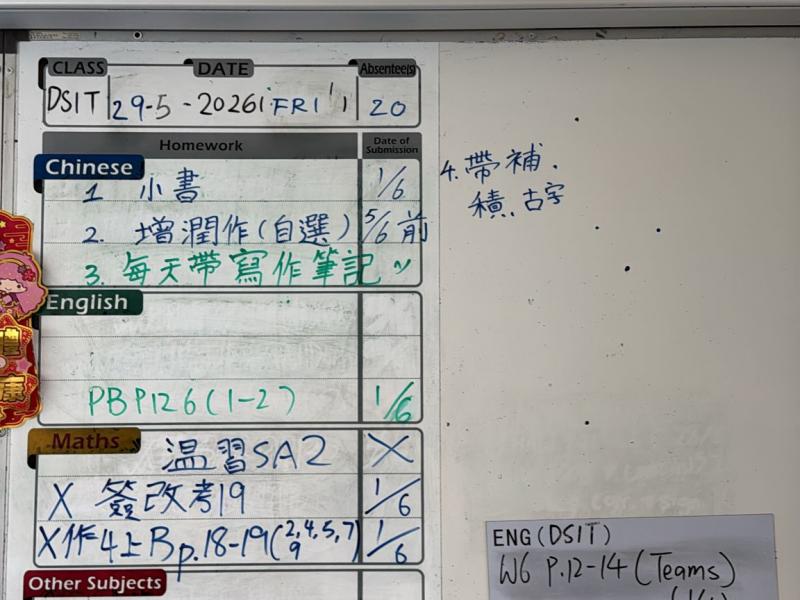 CLASS DATE Absentee(s)
DSIT 29-5-2026 FRI 20
Homework Date of Submission
Chinese
1 小書 1/6
2. 增潤作(自選) 5/6前
3. 每天帶寫作筆記
4. 帶補.
積. 古字
English
PB P126(1-2) 1/6
Maths
温習SA2 X
X 簽改考19 1/6
X作4上B p.18-19(2,4,5,7,9) 1/6
Other Subjects
ENG(DSIT)
W6 P.12-14 (Teams)